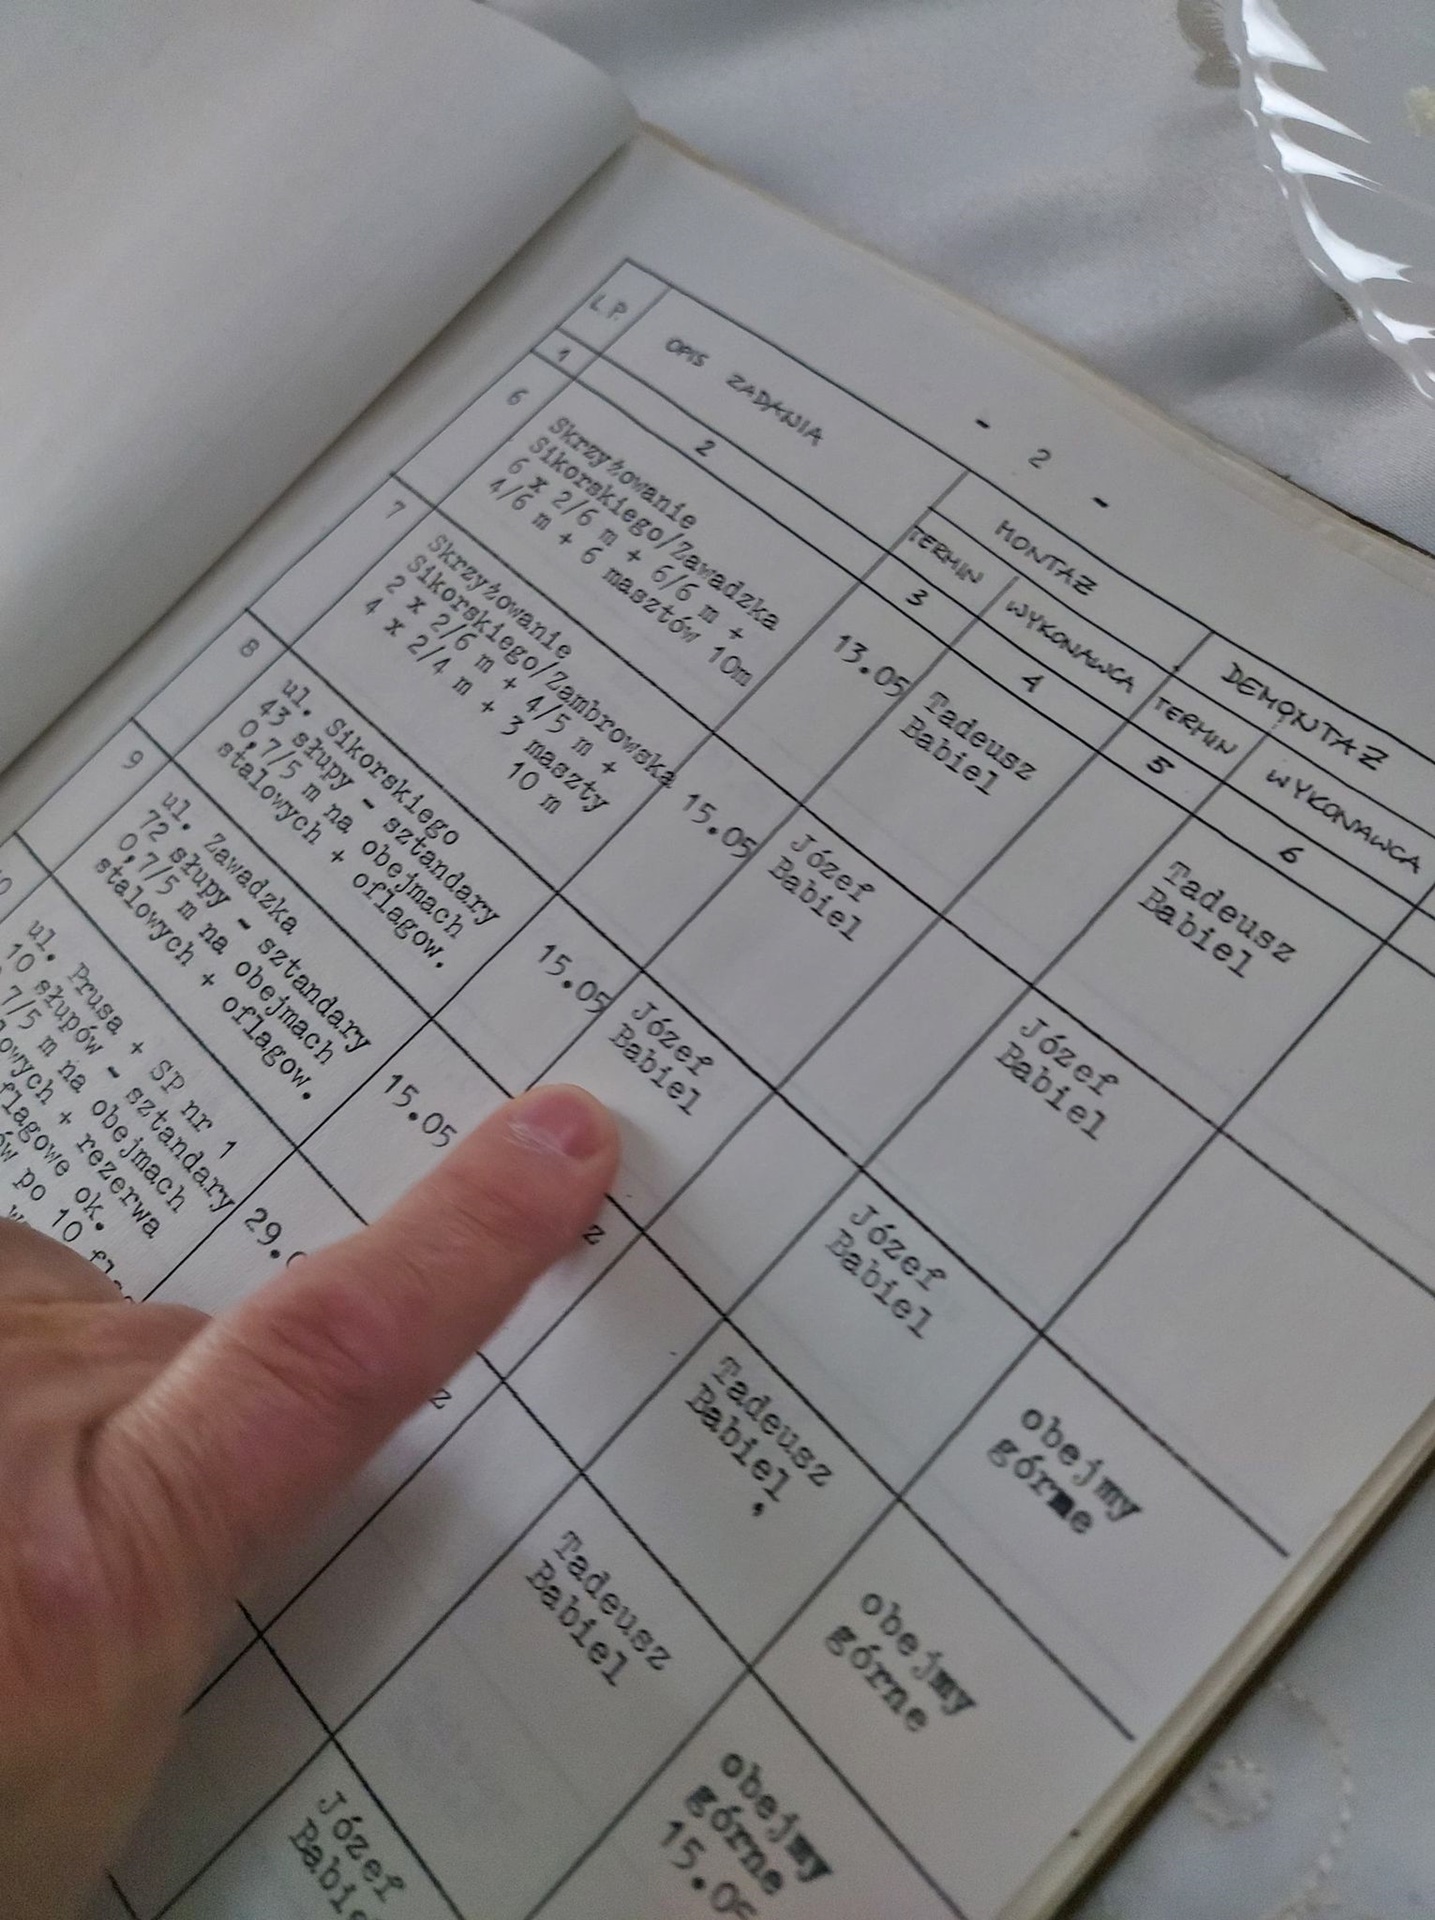 - 2 -
L.P.
OPIS ZADANIA
MONTAŻ
DEMONTAŻ
TERMIN
WYKONAWCA
TERMIN
WYKONAWCA
1
2
3
4
5
6
6
Skrzyżowanie
Sikorskiego/Zawadzka
6 x 2/6 m + 6/6 m +
4/6 m + 6 masztów 10m
13.05
Tadeusz
Babiel
Tadeusz
Babiel
7
Skrzyżowanie
Sikorskiego/Zambrowska
2 x 2/6 m + 4/5 m +
4 x 2/4 m + 3 maszty
10 m
15.05
Józef
Babiel
Józef
Babiel
8
ul. Sikorskiego
43 słupy - sztandary
0,7/5 m na obejmach
stalowych + oflagow.
15.05
Józef
Babiel
Józef
Babiel
obejmy
górne
9
ul. Zawadzka
72 słupy - sztandary
0,7/5 m na obejmach
stalowych + oflagow.
15.05
z
Tadeusz
Babiel,
obejmy
górne
ul. Prusa + SP nr 1
10 słupów - sztandary
7/5 m na obejmach
owych + rezerwa
flagowe ok.
ów po 10
29.
z
Tadeusz
Babiel
obejmy
górne
15.05
Józef